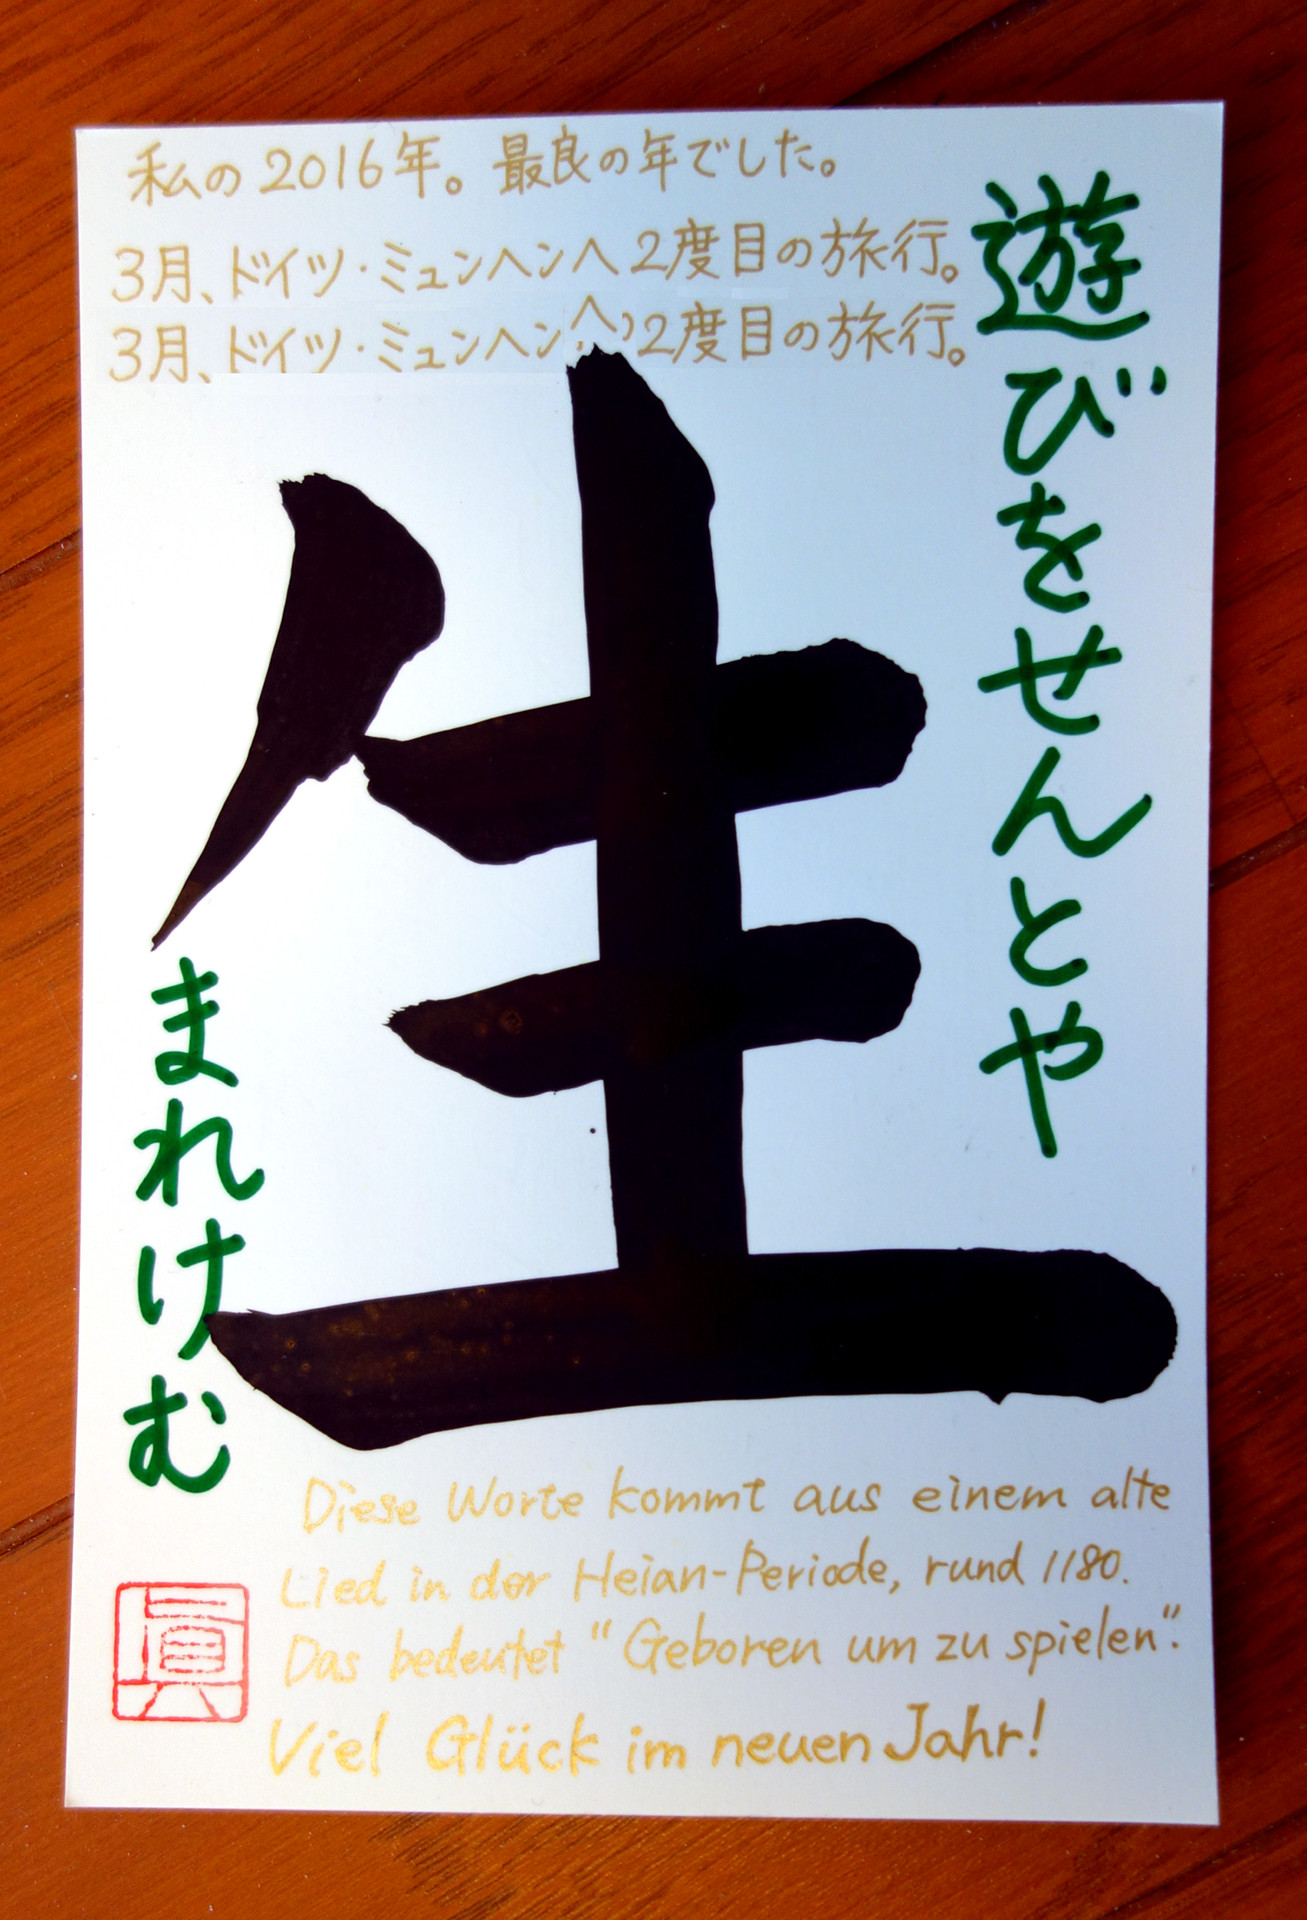 私の2016年。最良の年でした。
3月、ドイツ・ミュンヘンへ2度目の旅行。
3月、ドイツ・ミュンヘンへ2度目の旅行。
遊びをせんとや
生
まれけむ
Diese Worte kommt aus einem alte
Lied in der Heian-Periode, rund 1180.
Das bedeutet "Geboren um zu spielen".
Viel Glück im neuen Jahr!
眞